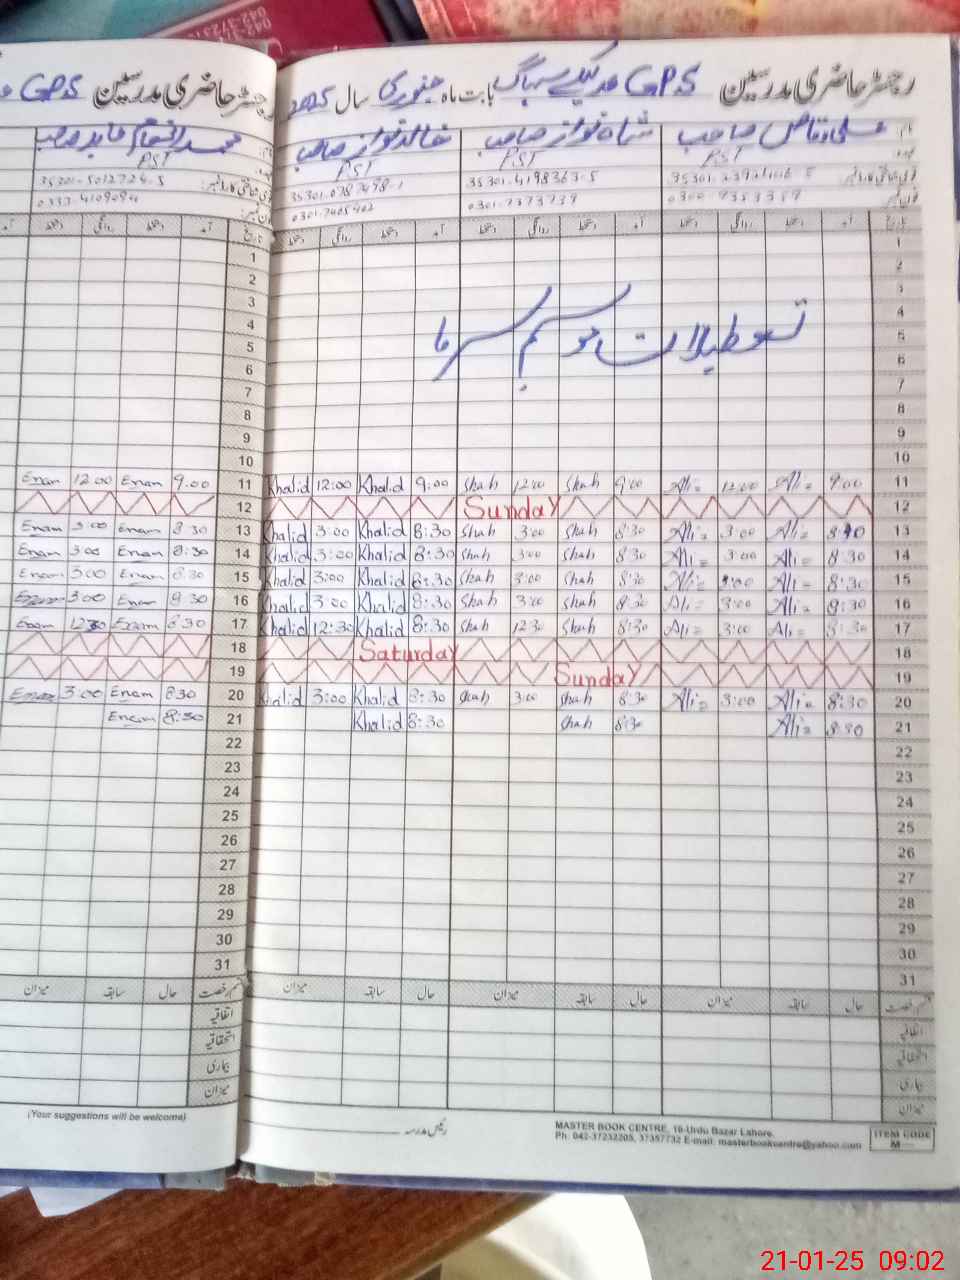 رجسٹر حاضری مدرسین GPS بابت ماہ جنوری سال 2025
رجسٹر حاضری مدرسین GPS
علی وقاص صاحب شاہ نواز صاحب خالد نواز صاحب
PST PST PST PST
35301-4198363-5
35301-0787498-1
0301-7373739
آمد دستخط روانگی دستخط
تعطیلات موسم سرما
1
2
3
4
5
6
7
8
9
10
Enam 12:00 Enam 9:00 11 Khalid 12:00 Khalid 9:00 Shah 12:00 Shah 9:00 Ali 12:00 Ali 9:00 11
12 Sunday 12
Enam 3:00 Enam 8:30 13 Khalid 3:00 Khalid 8:30 Shah 3:00 Shah 8:30 Ali 3:00 Ali 8:30 13
Enam 3:00 Enam 8:30 14 Khalid 3:00 Khalid 8:30 Shah 3:00 Shah 8:30 Ali 3:00 Ali 8:30 14
Enam 3:00 Enam 8:30 15 Khalid 3:00 Khalid 8:30 Shah 3:00 Shah 8:30 Ali 3:00 Ali 8:30 15
Enam 3:00 Enam 8:30 16 Khalid 3:00 Khalid 8:30 Shah 3:00 Shah 8:30 Ali 3:00 Ali 8:30 16
Enam 12:30 Enam 8:30 17 Khalid 12:30 Khalid 8:30 Shah 12:30 Shah 8:30 Ali 3:00 Ali 8:30 17
18 Saturday 18
19 Sunday 19
Enam 3:00 Enam 8:30 20 Khalid 3:00 Khalid 8:30 Shah 3:00 Shah 8:30 Ali 3:00 Ali 8:30 20
Enam 8:30 21 Khalid 8:30 Shah 8:30 Ali 8:30 21
22 22
23 23
24 24
25 25
26 26
27 27
28 28
29 29
30 30
31 31
میزان سابقہ حال قسم رخصت میزان سابقہ حال میزان سابقہ حال میزان سابقہ حال قسم رخصت
اتفاقیہ اتفاقیہ
استحقاقیہ استحقاقیہ
بیماری بیماری
میزان میزان
(Your suggestions will be welcome)
رئیس مدرسہ
MASTER BOOK CENTRE, 16-Urdu Bazar Lahore.
Ph: 042-37232205, 37357732 E-mail: masterbookcentre@yahoo.com
ITEM CODE
M
21-01-25 09:02